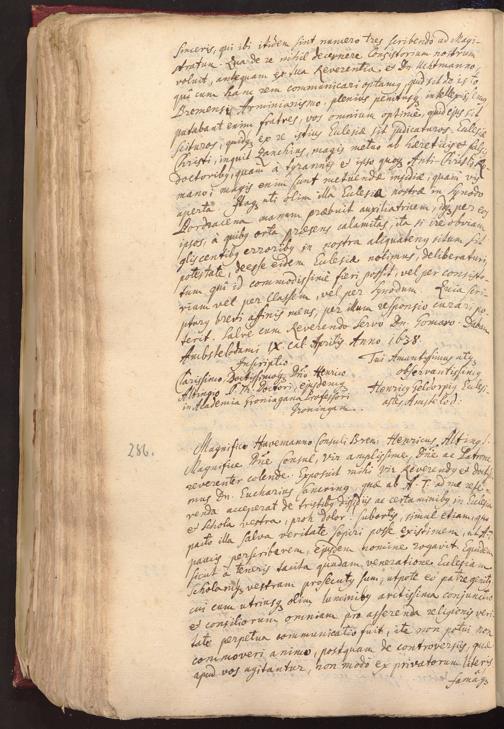 sinceris, qui ibi itidem sint numero tres scribendo ad Magi-
stratum. Qua de re nihil decernere Consistorium nostrum
voluit, antequam ex tua Reverentia, et Dn. Uchtmanno,
quî cum hanc rem communicari optamus, quid sit de isto
Bremensi Arminianismo, plenius penitusque intellexissemus
putabant enim fratres, vos omnium optimè, quid ejus sit
scituros, quidque ex re istius Eulesiæ sit judicaturos, Eulesiæ
Christi, inquit Zanchius, magis metuo ab hæreticis et falsis
doctoribus, quam à tyrannis et ipso quoque Anti-Christo
mano; magis enim sunt metuendæ insidiæ, quam vis
aperta. Itaque uti olim illa Eulesia nostræ in Synodo
Dordracena manum præbuit auxiliatricem, per eos
ipsos, à quibus orta præsens calamitas, ita si ire obviam
gliscentibus erroribus in nostra aliquatenus situm sit
potestate, deesse eidem Eulesiæ nolimus, deliberaturi
tum quî id commodissimè fieri possit, vel per consisto-
rium vel per Classem, vel per Synodum. Quia scri-
ptor brevi affinis meus, per illum responsio curari po-
terit. Salve cum Reverendo Servo Dn. Gomaro. Dabam
Ambstelodami IX. Cal Aprilis Anno 1638.
Inscriptio
Clarissimo, Doctissimoque Dño Henrico
Altingio S. Th. Doctori, ejusdemque
in Academia Groningana Professori
Groningam.
Tui Amantissimus atque
observantissimus
Henricus Geldorpius Eulesi-
astes Amstelod.
286.
Magnifico Havemanno Consuli Brem. Henricus Alting
Magnifice Dñe Consul, Vir amplissime, Dñe ac Patrone
reverenter colende. Exposuit mihi Vir Reverendus et Doctis
mus Dn. Eucharius quæ ab A. T. ad me refe-
renda acceperat de tristibus dissidiis ac certaminibus in Eulesia
et Schola vestra, proh dolor! subortis, simul etiam, quo
pacto illa salva veritate sopiri posse existimem, ut
paucis perscriberem, ejusdem nomine rogavit. Equidem
sicut à teneris tacita quadam veneratione Eulesiam
Scholamque vestram prosecutus sum, utpote ex patre genitus
cui cum utriusque olim luminibus arctissima conjunctio
et consiliorum omnium pro asserenda religionis veri-
tate perpetua communicatio fuit, ita non potui non
commoveri animo, postquam de controversiis, quæ
apud vos agitantur, non modò ex privatorum literis
famaque